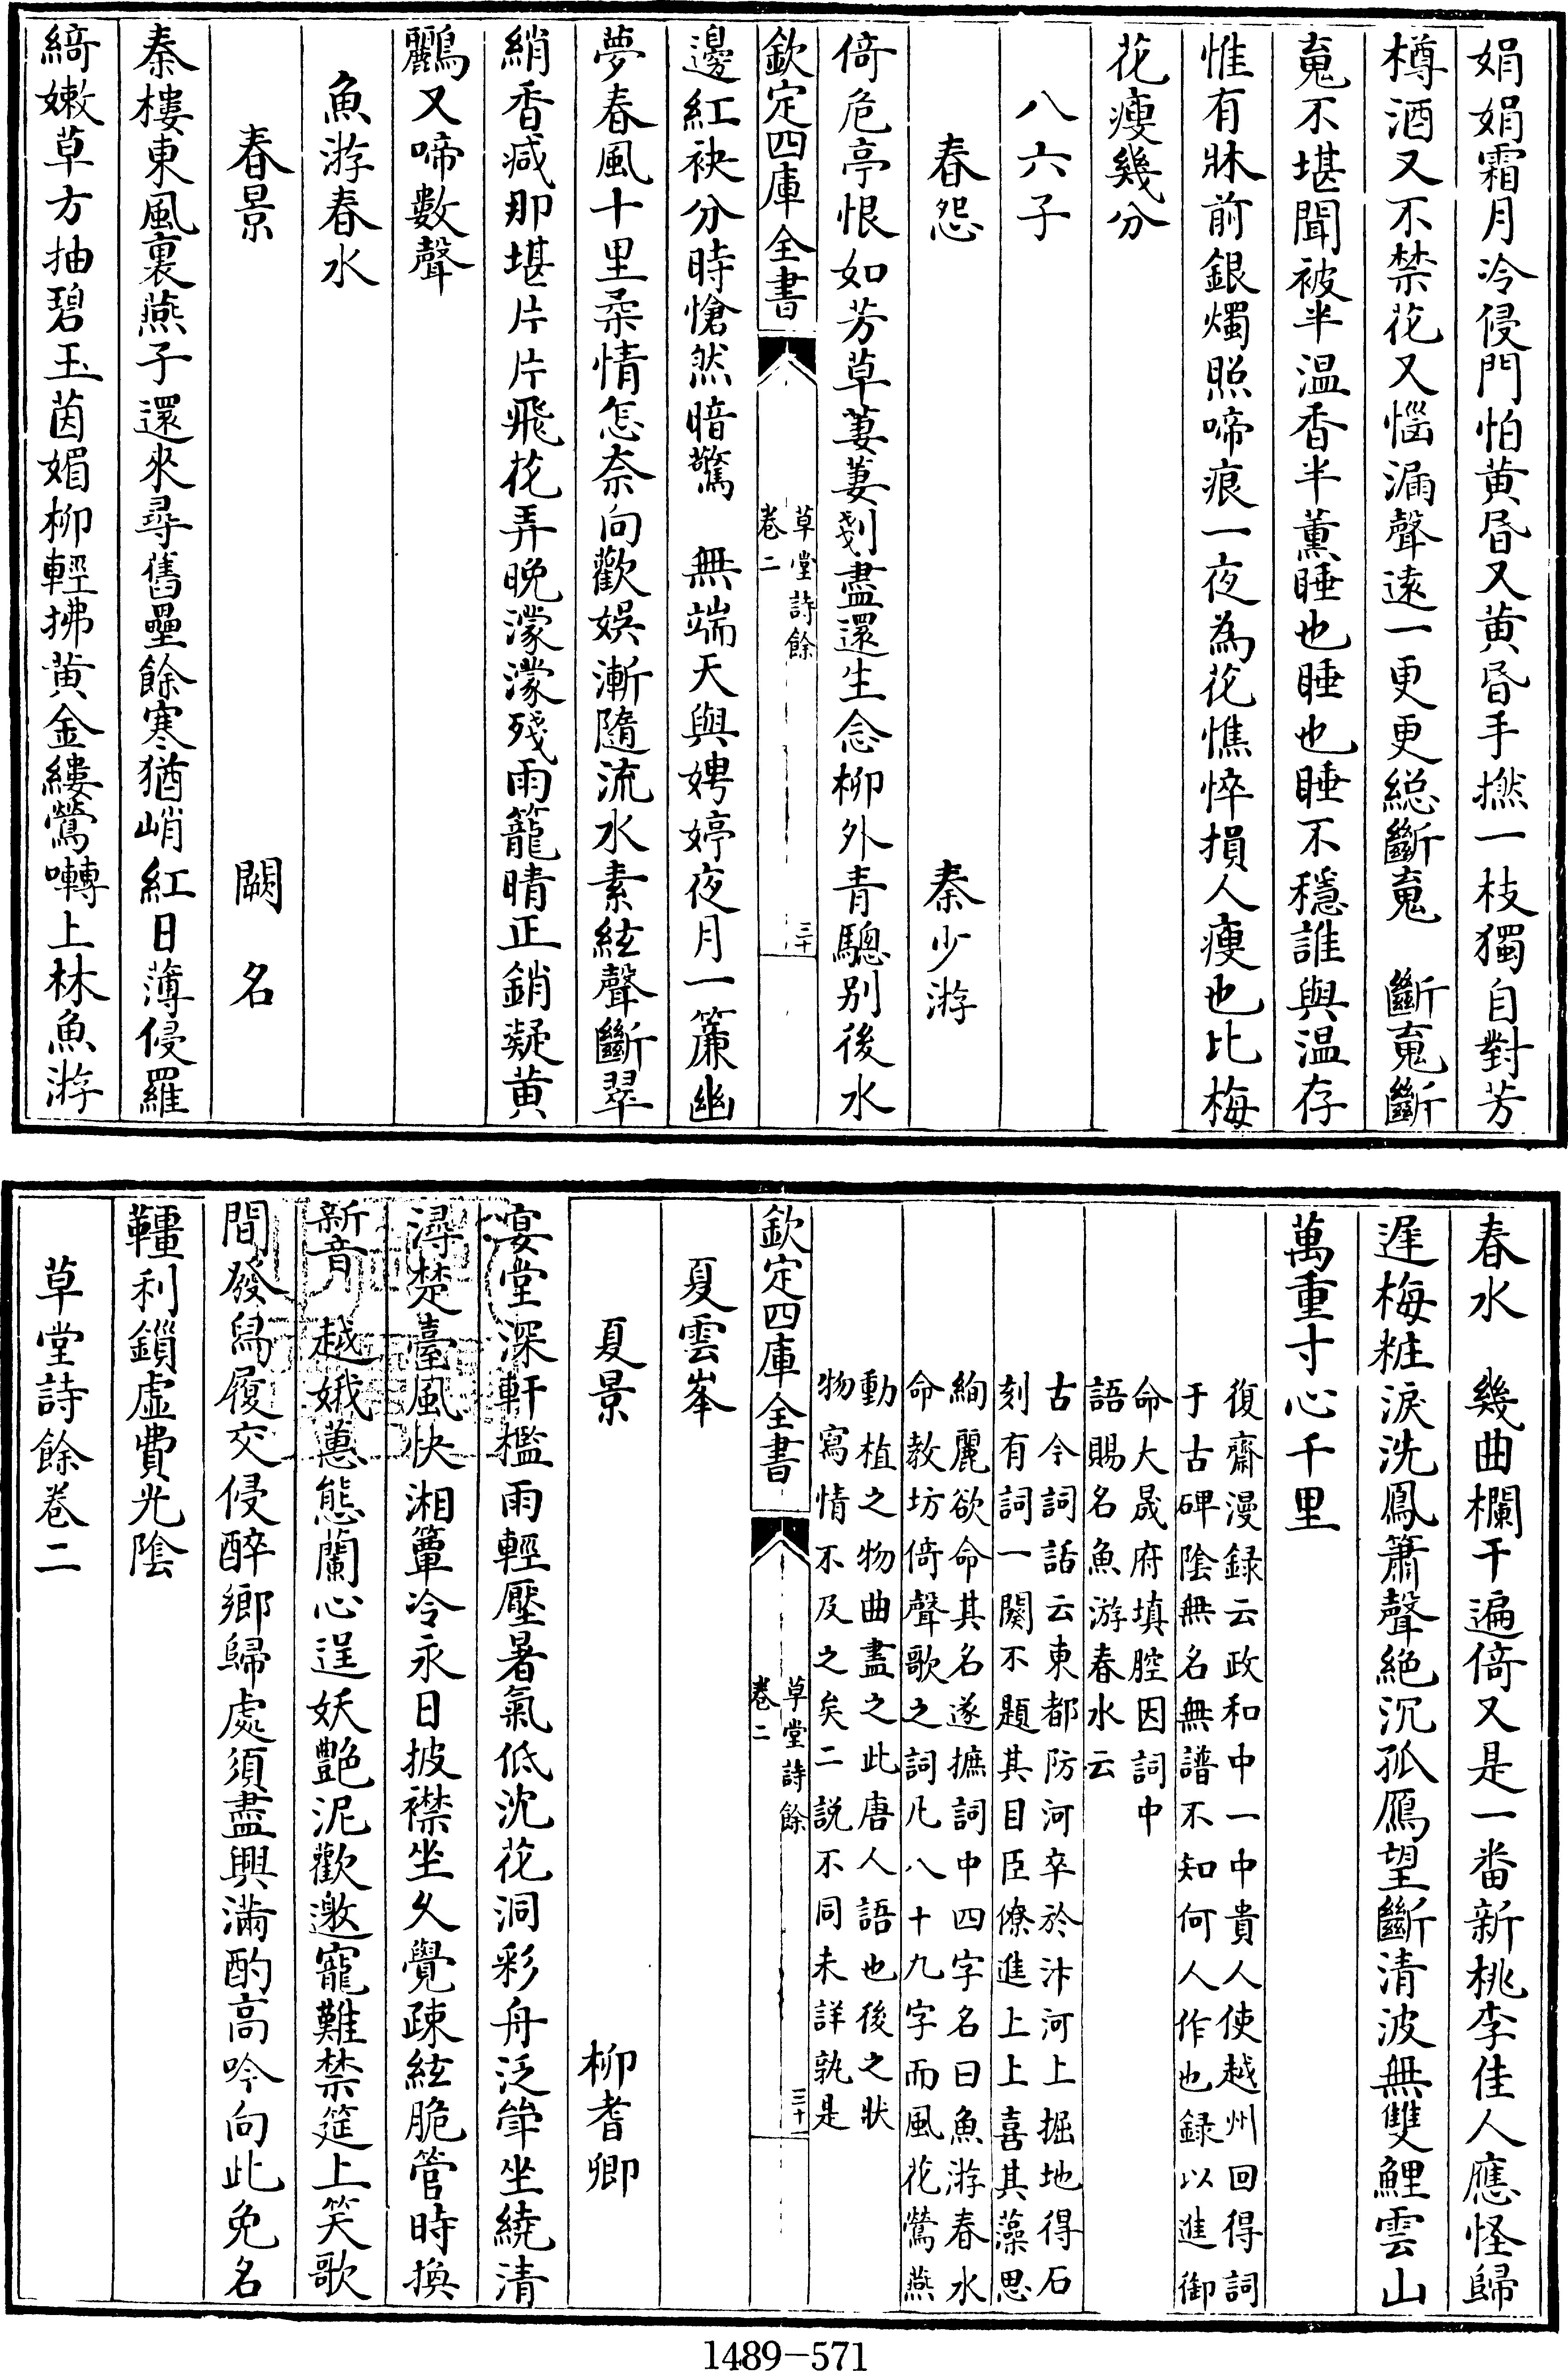 娟娟霜月冷侵門怕黄昏又黄昏手撚一枝獨自對芳
樽酒又不禁花又惱漏聲遠一更更總斷䰟　斷䰟斷
䰟不堪聞被半温香半薰睡也睡也睡不穩誰與温存
惟有牀前銀燭照啼痕一夜為花憔悴損人瘦也比梅
花瘦幾分
八六子
春怨　秦少游
倚危亭恨如芳草萋萋剗盡還生念柳外青驄别後水
欽定四庫全書
草堂詩餘
卷二
三十
邊紅袂分時愴然暗驚　無端天與娉婷夜月一簾幽
夢春風十里柔情怎奈向歡娱漸隨流水素絃聲斷翠
綃香減那堪片片飛花弄晚濛濛殘雨籠晴正銷凝黄
鸝又啼數聲
魚游春水
春景　闕名
秦樓東風裏燕子還來尋舊壘餘寒猶峭紅日薄侵羅
綺嫩草方抽碧玉茵媚柳輕拂黄金縷鶯囀上林魚游
春水　幾曲欄干遍倚又是一番新桃李佳人應怪歸
遲梅粧淚洗鳳簫聲絶沉孤鴈望斷清波無雙鯉雲山
萬重寸心千里
復齋漫録云政和中一中貴人使越州回得詞
于古碑陰無名無譜不知何人作也録以進御
命大晟府填腔因詞中
語賜名魚游春水云
古今詞話云東都防河卒於汴河上掘地得石
刻有詞一闋不題其目臣僚進上上喜其藻思
絢麗欲命其名遂摭詞中四字名曰魚游春水
命教坊倚聲歌之詞凡八十九字而風花鶯燕
動植之物曲盡之此唐人語也後之狀
物寫情不及之矣二説不同未詳孰是
欽定四庫全書
草堂詩餘
卷二
三十
夏雲峯
夏景　柳耆卿
宴堂深軒檻雨輕壓暑氣低沈花洞彩舟泛斝坐繞清
潯楚臺風快湘簟冷永日披襟坐久覺疎絃脆管時換
新音　越娥蕙態蘭心逞妖艶泥歡邀寵難禁筵上笑歌
間發舄履交侵醉鄉歸處須盡興滿酌高吟向此免名
韁利鎖虚費光陰
草堂詩餘卷二
1489-571